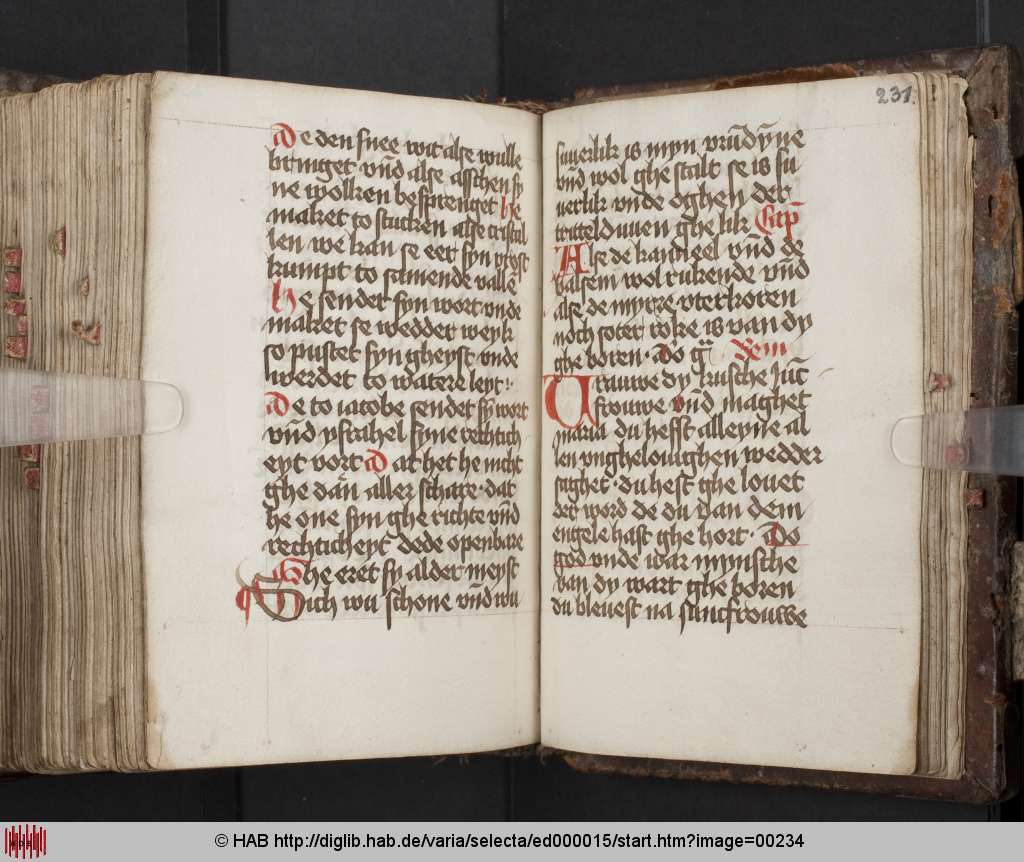 De den snee wit alse wulle
bringet vnd alse asschen sy
ne wolken besprenget he
maket to stucken alse cristal
len we kan se eer syn vrost
kumpt to samende vallen
he sendet syn wort vnde
maket se wedder weyk
so pustet syn gheyst vnde
werdet to watere leyt
De to iacobe sendet sy wort
vnd ysrahel syne rechtich
eyt vort Dat het he nicht
ghe dan aller schare dat
he one syn ghe richte vnd
rechticheyt dede openbare
Ghe eret sy alder meyst
Sich wu schone vnd wu
231.
suuerlik is myn vrundynne
vnd wol ghe stalt se is su
uerlik vnde oghen der
torteld uuen ghe lik Cap
Alse de kanneel vnd de
balsem wol rukende vnd
alse de myrre vterkoren
noch soter roke is van dy
ghe boren
Vrauwe dy kusche Junc
frouwe vnd maghet
maria du hefst alleyne al
len vnghelouighen wedder
saghet du hest ghe louet
der word de du van dem
engele hast ghe hort Do
god vnde war mynsche
van dy wart ghe boren
du bleuest na juncfrouwe
© HAB http://diglib.hab.de/varia/selecta/ed000015/start.htm?image=00234